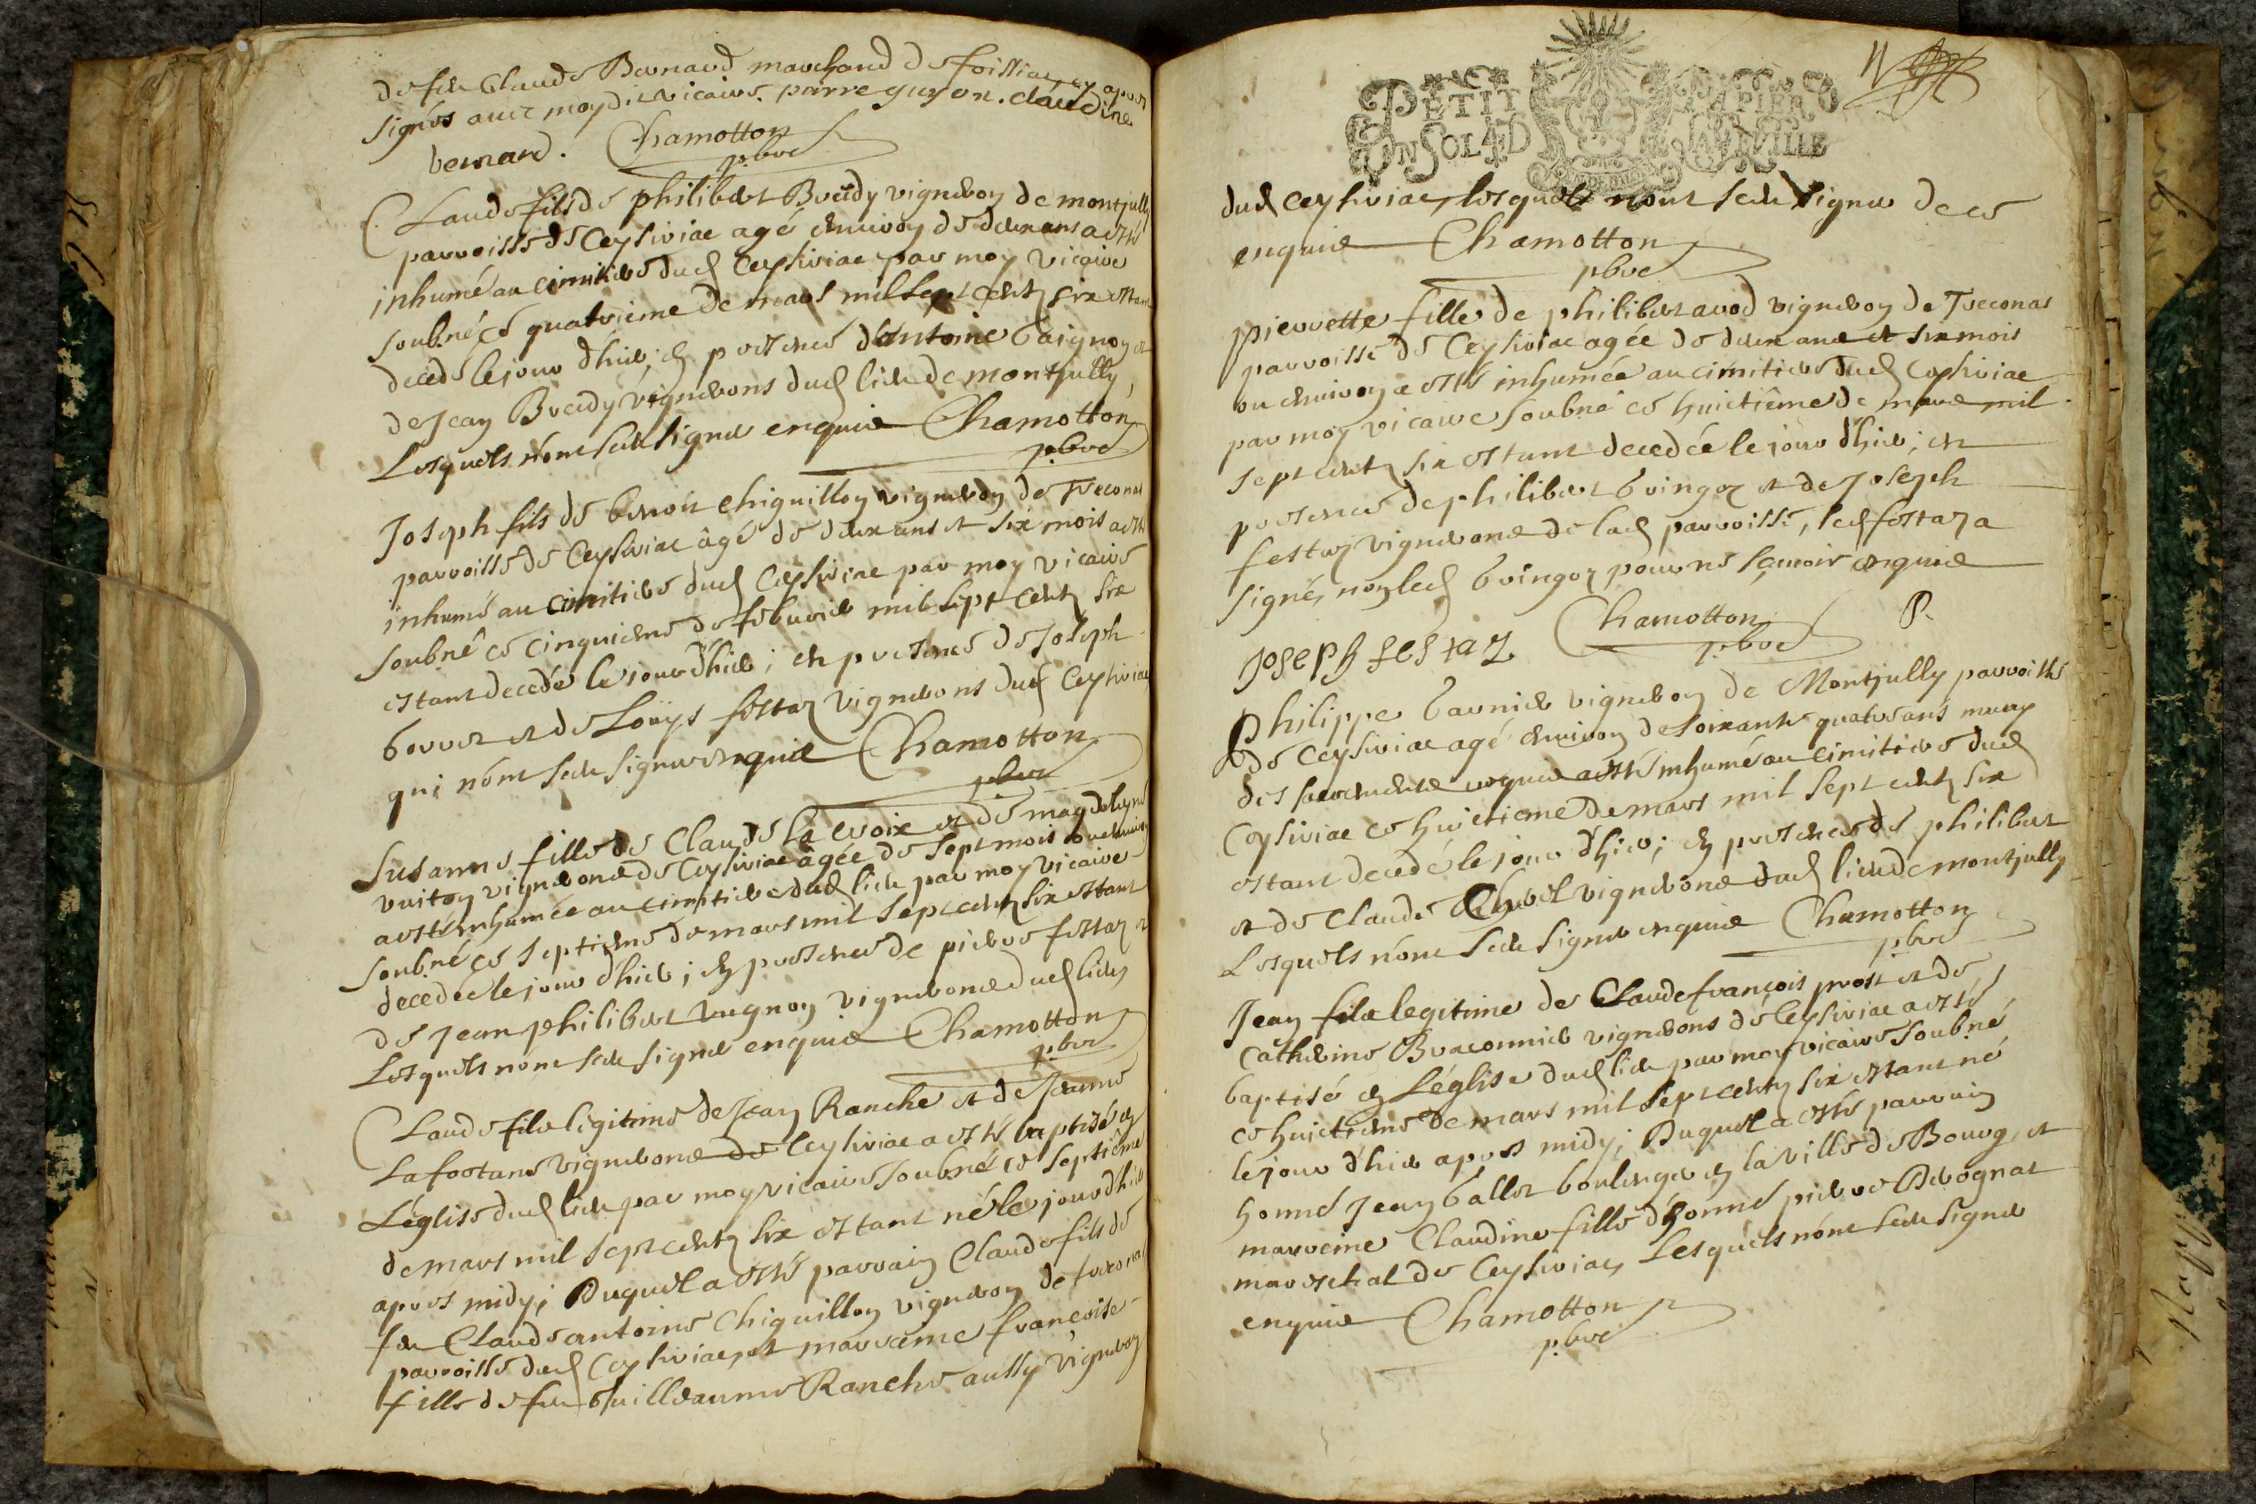 de feu Claude Bernard marchand de foissiac cy apres
signés avec moydit vicaire. pierre guyon. claudine
bernard. Chamotton
pbre
Claude fils de philibert Brecidy vigneron de montjully
parroisse de Ceyseriac agé environ de deux ans a esté
inhumé au cimitiere dud Ceyseriac par moy vicaire
soubné ce quatrieme de mars mil sept centz six estant
decedé le jour d'hier, en presence d'antoine baignoy et
de Jean Brecidy vignerons dud lieu de montjully,
Lesquels n'ont sceu signer enquis Chamotton
pbre
Joseph fils de benoit chiquilloy vigneron de Treconas
parroisse de Ceyseriac âgé de deux ans et six mois a esté
inhumé au cimitiere dud Ceyseriac par moy vicaire
soubné ce cinquieme de febvrier mil sept centz six
estant decedé le jour d'hier; en presence de Joseph
bovier et de Louys festaz vignerons dud Ceyseriac
qui n'ont sceu signer enquis Chamotton
pbre
Susanne fille de Claude La croix et de magdeleyne
vuitoy vignerons de Ceyseriac âgée de sept mois ou environ
a esté inhumée au cimitiere dud lieu par moy vicaire
soubné ce septieme de mars mil sept centz six estant
decedée le jour d'hier; en presence de pierre festaz et
de Jean philibert vugnoy vignerons dud lieu
Lesquels n'ont sceu signer enquis Chamotton
pbre
Claude fils legitime de Jean Ranche et de Jeanne
Lafontane vignerons de Ceyseriac a esté baptisé en
Léglise dud lieu par moy vicaire soubné ce septieme
de mars mil sept centz six estant né le jour d'hier
apres midy; Duquel a esté parrain Claude fils de
feu Claude antoine Chiquilloy vigneron de treconas
parroisse dud Ceyseriac, et marraine francoise
fille de feu Guilleaume Ranche aussy vigneron
PETIT PAPIER
UN SOL 4 D LA FEUILLE
dud Ceyseriac, lesquels n'ont sceu signer de ce
enquis Chamotton
pbre
pierrette fille de philibert avod vigneron de Treconas
parroisse de Ceyseriac agée de deux ans et six mois
ou environ a esté inhumée au cimitiere dud Ceyseriac
par moy vicaire soubné ce huictiême de mars mil
sept centz six estant decedée le jour d'hier; en
presence de philibert bringoz et de Joseph
festaz vignerons de lad parroisse, led festaz a
signé, non led bringoz pour ne sçavoir enquis
Joseph festaz Chamotton P.
pbre
Philippe barnier vigneron de Montjully parroisse
de Ceyseriac agé environ de soixante quatre ans muny
des sacrements requis a esté inhumé au cimitiere dud
Ceyseriac ce huictieme de mars mil sept centz six
estant decedé le jour d'hier; en presence de philibert
et de Claude Chevel vignerons dud lieu de montjully
Lesquels n'ont sceu signer enquis Chamotton
pbre
Jean fils legitime de Claude françois prost et de
Catherine Braconnier vignerons de Ceyseriac a esté
baptisé en Léglise dud lieu par moy vicaire soubné
ce huictieme de mars mil sept centz six estant né
le jour d'hier apres midy; Duquel a esté parrain
honné Jean ballet boulenger en la ville de Bourg, et
marreine Claudine fille d'honné pierre Perognat
mareschal de Ceyseriac, Lesquels n'ont sceu signer
enquis Chamotton
pbre